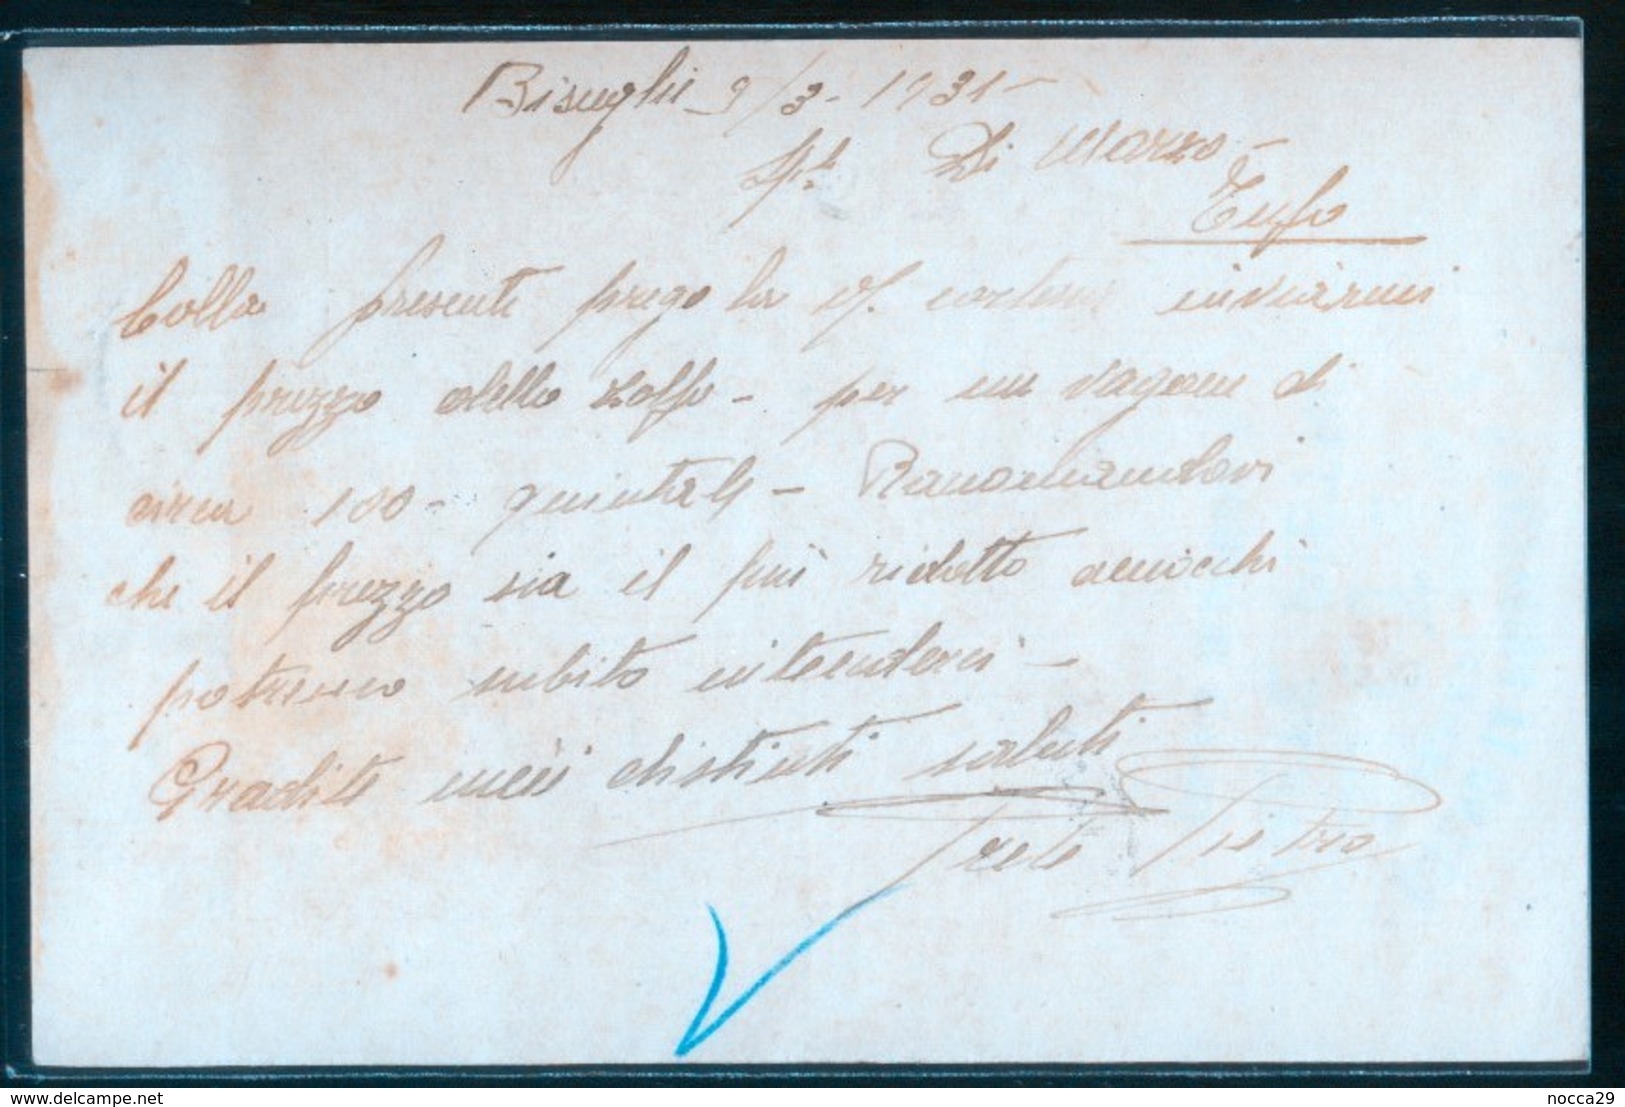 Bisceglie 9/3-1931-
Sp. Di Marzo-
Tufo
Colla presente prego la V/. cortesia inviarmi
il prezzo dello zolfo - per un vagone di
circa 100- quintali - Raccomandovi
che il prezzo sia il più ridotto acciocchè
potremo subito intenderci -
Gradite miei distinti saluti
Prete Pietro
delcampe.net
nocca29